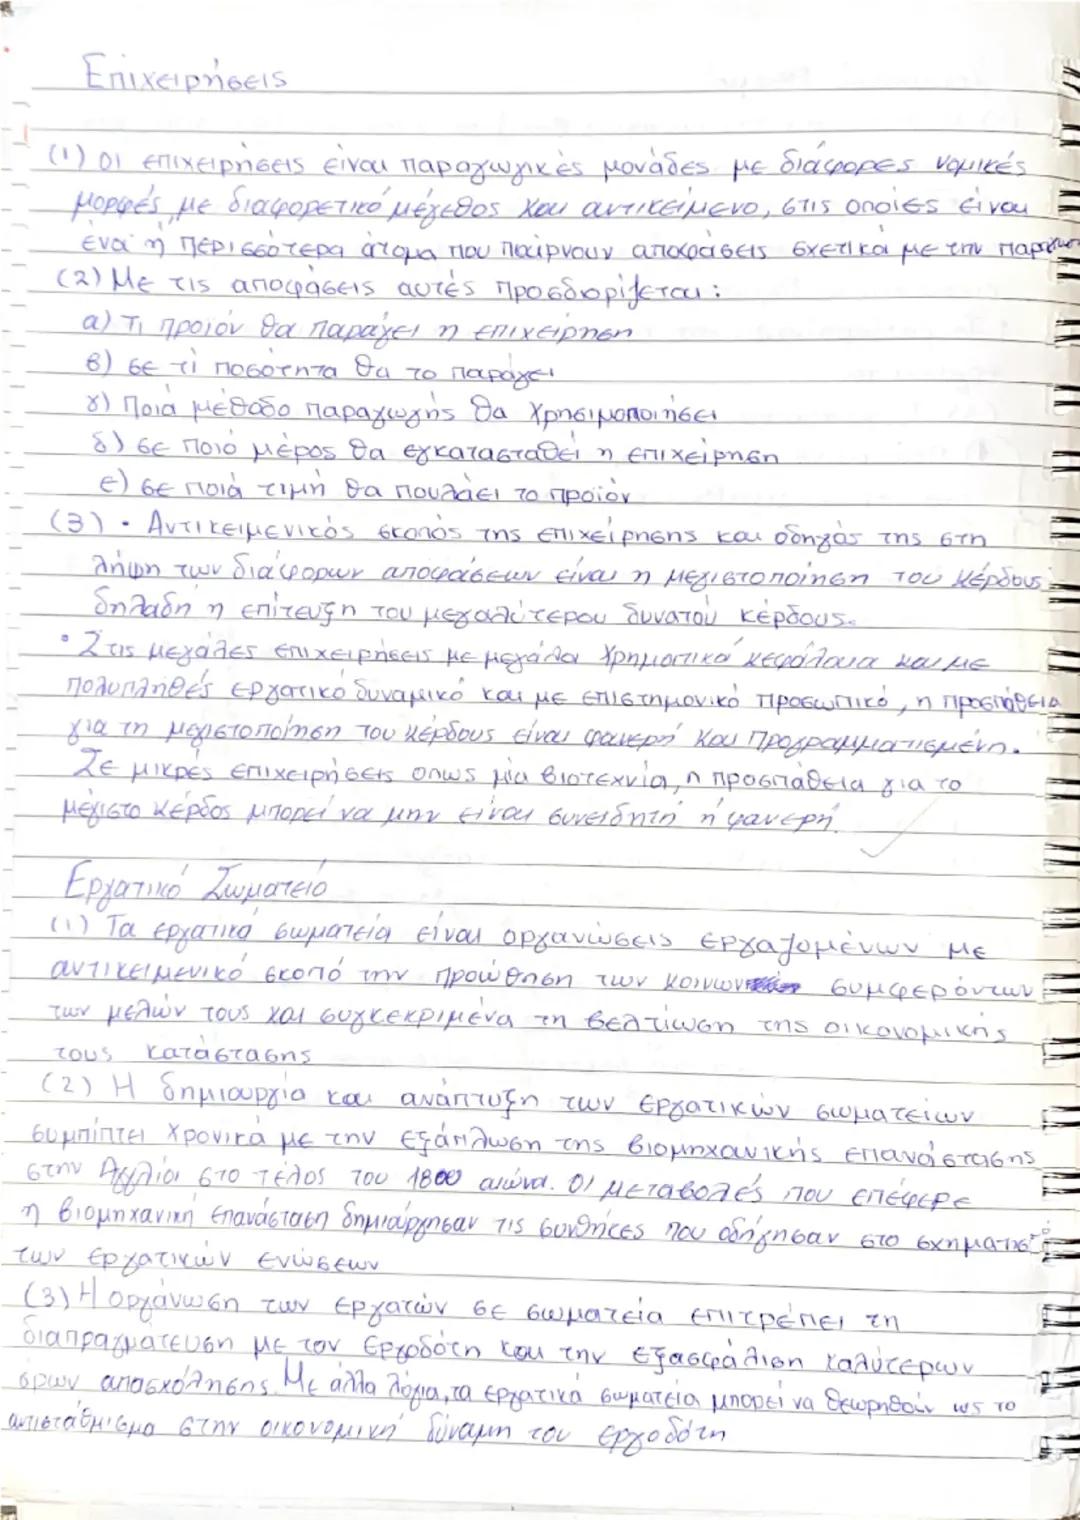 Επιχειρήσεις
(1) Οι επιχειρήσεις είναι παραγωγικές μονάδες με διάφορες νομικές
μορφές, με διαφορετικό μέγεθος και αντικείμενο, στις οποίες είναι
ένα ή περισσότερα άτομα που παίρνουν αποφάσεις σχετικά με την
(2) Με τις αποφάσεις αυτές προσδιορίζεται:
α) Τι προϊόν θα παράγει η επιχείρηση
β) σε τί ποσότητα θα το παράγει
γ) Ποιά μέθοδο παραγωγής θα χρησιμοποιήσει
δ) σε ποιό μέρος θα εγκατασταθεί η επιχείρηση
ε) σε ποιά τιμή θα πουλάει το προϊόν
(3) • Αντικειμενικός σκοπός της επιχείρησης και οδηγός της στη
λήψη των διάφορων αποφάσεων είναι η μεγιστοποίηση του κέρδους
δηλαδή η επίτευξη του μεγαλύτερου δυνατού κέρδους.
• Στις μεγάλες επιχειρήσεις με μεγάλα χρηματικά κεφάλαια και με
πολυπληθές εργατικό δυναμικό και με επιστημονικό προσωπικό, η προσπάθεια
για τη μεγιστοποίηση του κέρδους είναι φανερή και προγραμματισμένη.
Σε μικρές επιχειρήσεις όπως μία βιοτεχνία, η προσπάθεια για το
μέγιστο κέρδος μπορεί να μην είναι συνειδητή ή φανερή.
Εργατικό Σωματείο
(1) Τα εργατικά σωματεία είναι οργανώσεις εργαζομένων με
αντικειμενικό σκοπό την προώθηση των κοινων συμφερόντων
των μελών τους και συγκεκριμένα τη βελτίωση της οικονομικής
τους κατάστασης
(2) Η δημιουργία και ανάπτυξη των εργατικών σωματείων
συμπίπτει χρονικά με την εξάπλωση της βιομηχανικής επανάστασης
στην Αγγλία στο τέλος του 1800 αιώνα. Οι μεταβολές που επέφερε
η βιομηχανική επανάσταση δημιούργησαν τις συνθήκες που οδήγησαν στο
των εργατικών ενώσεων
(3) Η οργάνωση των εργατών σε σωματεία επιτρέπει τη
διαπραγμάτευση με τον εργοδότη και την εξασφάλιση καλύτερων
όρων απασχόλησης. Με άλλα λόγια, τα εργατικά σωματεία μπορεί να θεωρηθούν ως το
αντιστάθμισμα στην οικονομική δύναμη του εργοδότη